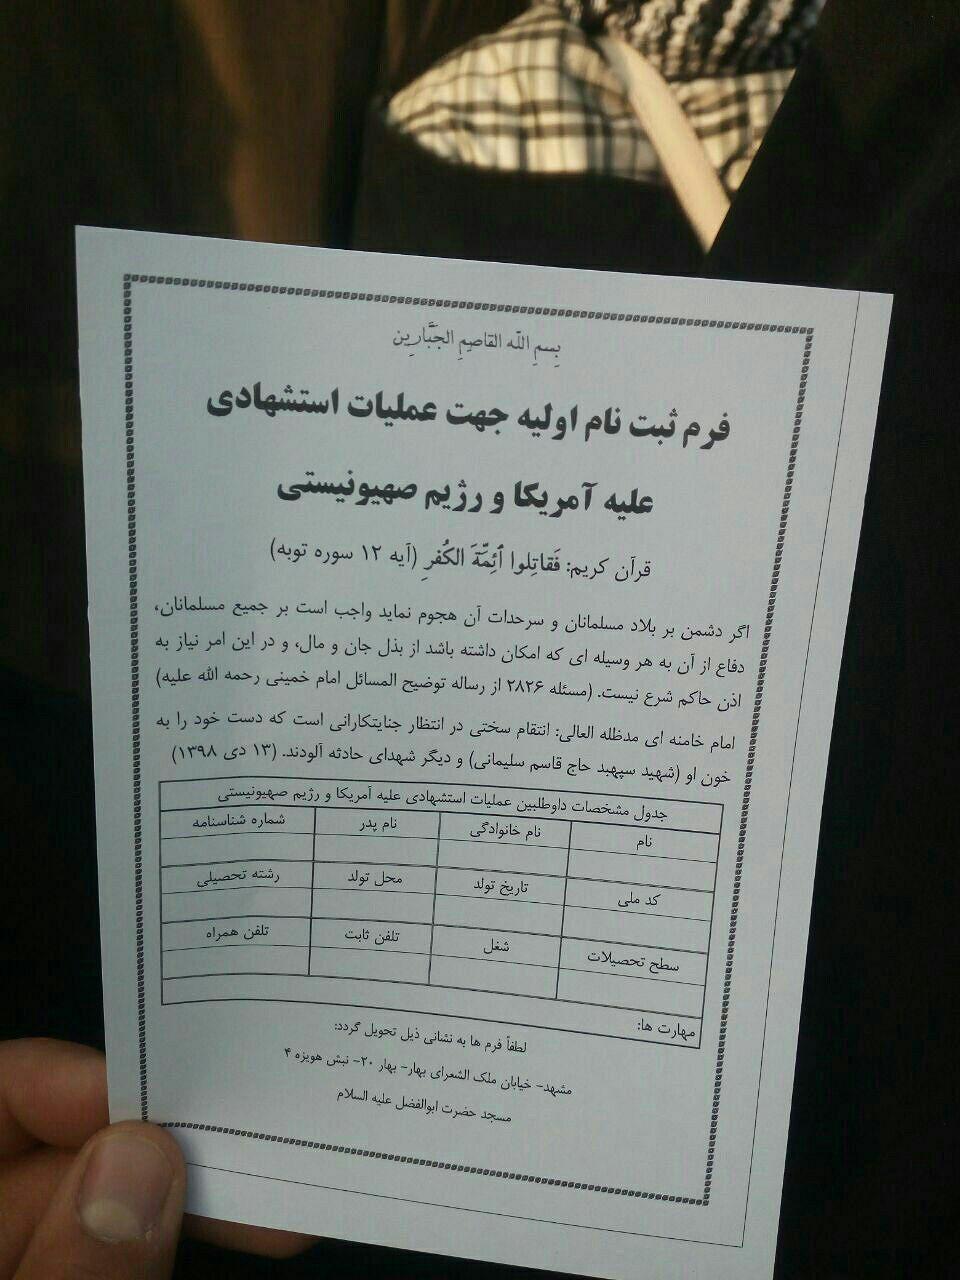 بِسمِ اللّه القاصِمِ الجَبَّارِین
فرم ثبت نام اولیه جهت عملیات استشهادی
علیه آمریکا و رژیم صهیونیستی
قرآن کریم: فَقاتِلوا أَئِمَّةَ الكُفرِ (آیه ۱۲ سوره توبه)
اگر دشمن بر بلاد مسلمانان و سرحدات آن هجوم نماید واجب است بر جمیع مسلمانان،
دفاع از آن به هر وسیله ای که امکان داشته باشد از بذل جان و مال، و در این امر نیاز به
اذن حاکم شرع نیست. (مسئله ۲۸۲۶ از رساله توضیح المسائل امام خمینی رحمه الله علیه)
امام خامنه ای مدظله العالی: انتقام سختی در انتظار جنایتکارانی است که دست خود را به
خون او (شهید سپهبد حاج قاسم سلیمانی) و دیگر شهدای حادثه آلودند. (۱۳ دی ۱۳۹۸)
جدول مشخصات داوطلبین عملیات استشهادی علیه آمریکا و رژیم صهیونیستی
نام نام خانوادگی نام پدر شماره شناسنامه
کد ملی تاریخ تولد محل تولد رشته تحصیلی
سطح تحصیلات شغل تلفن ثابت تلفن همراه
مهارت ها:
لطفاً فرم ها به نشانی ذیل تحویل گردد:
مشهد- خیابان ملک الشعرای بهار- بهار ۲۰- نبش هویزه ۴
مسجد حضرت ابوالفضل علیه السلام